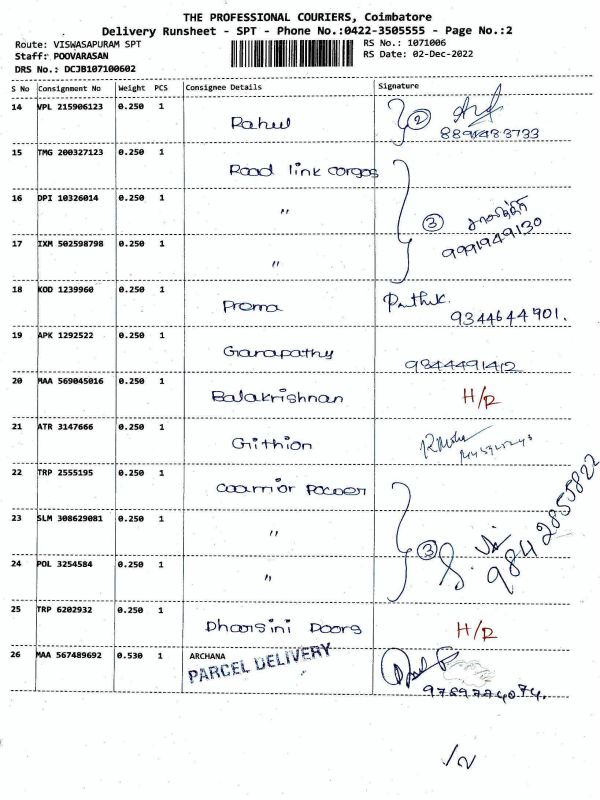 THE PROFESSIONAL COURIERS, Coimbatore
Delivery Runsheet - SPT - Phone No.:0422-3505555 - Page No.:2
Route: VISWASAPURAM SPT
RS No.: 1071006
Staff: POOVARASAN
RS Date: 02-Dec-2022
DRS No.: DCJB107100602
S No Consignment No Weight PCS Consignee Details Signature
14 VPL 215906123 0.250 1 Rahul 2
15 TMG 200327123 0.250 1 Road link corgos
16 DPI 10326014 0.250 1 " 3
9991949130
17 IXM 502598798 0.250 1 "
18 KOD 1239960 0.250 1 Prema
9344644901.
19 APK 1292522 0.250 1 Ganapathy 9844491412
20 MAA 569045016 0.250 1 Balakrishnan H/R
21 ATR 3147666 0.250 1 Githion
22 TRP 2555195 0.250 1
23 SLM 308629081 0.250 1 " 3 9842855822
24 POL 3254584 0.250 1 "
25 TRP 6202932 0.250 1 Dharsini Doors H/R
26 MAA 567489692 0.530 1 ARCHANA
PARCEL DELIVERY